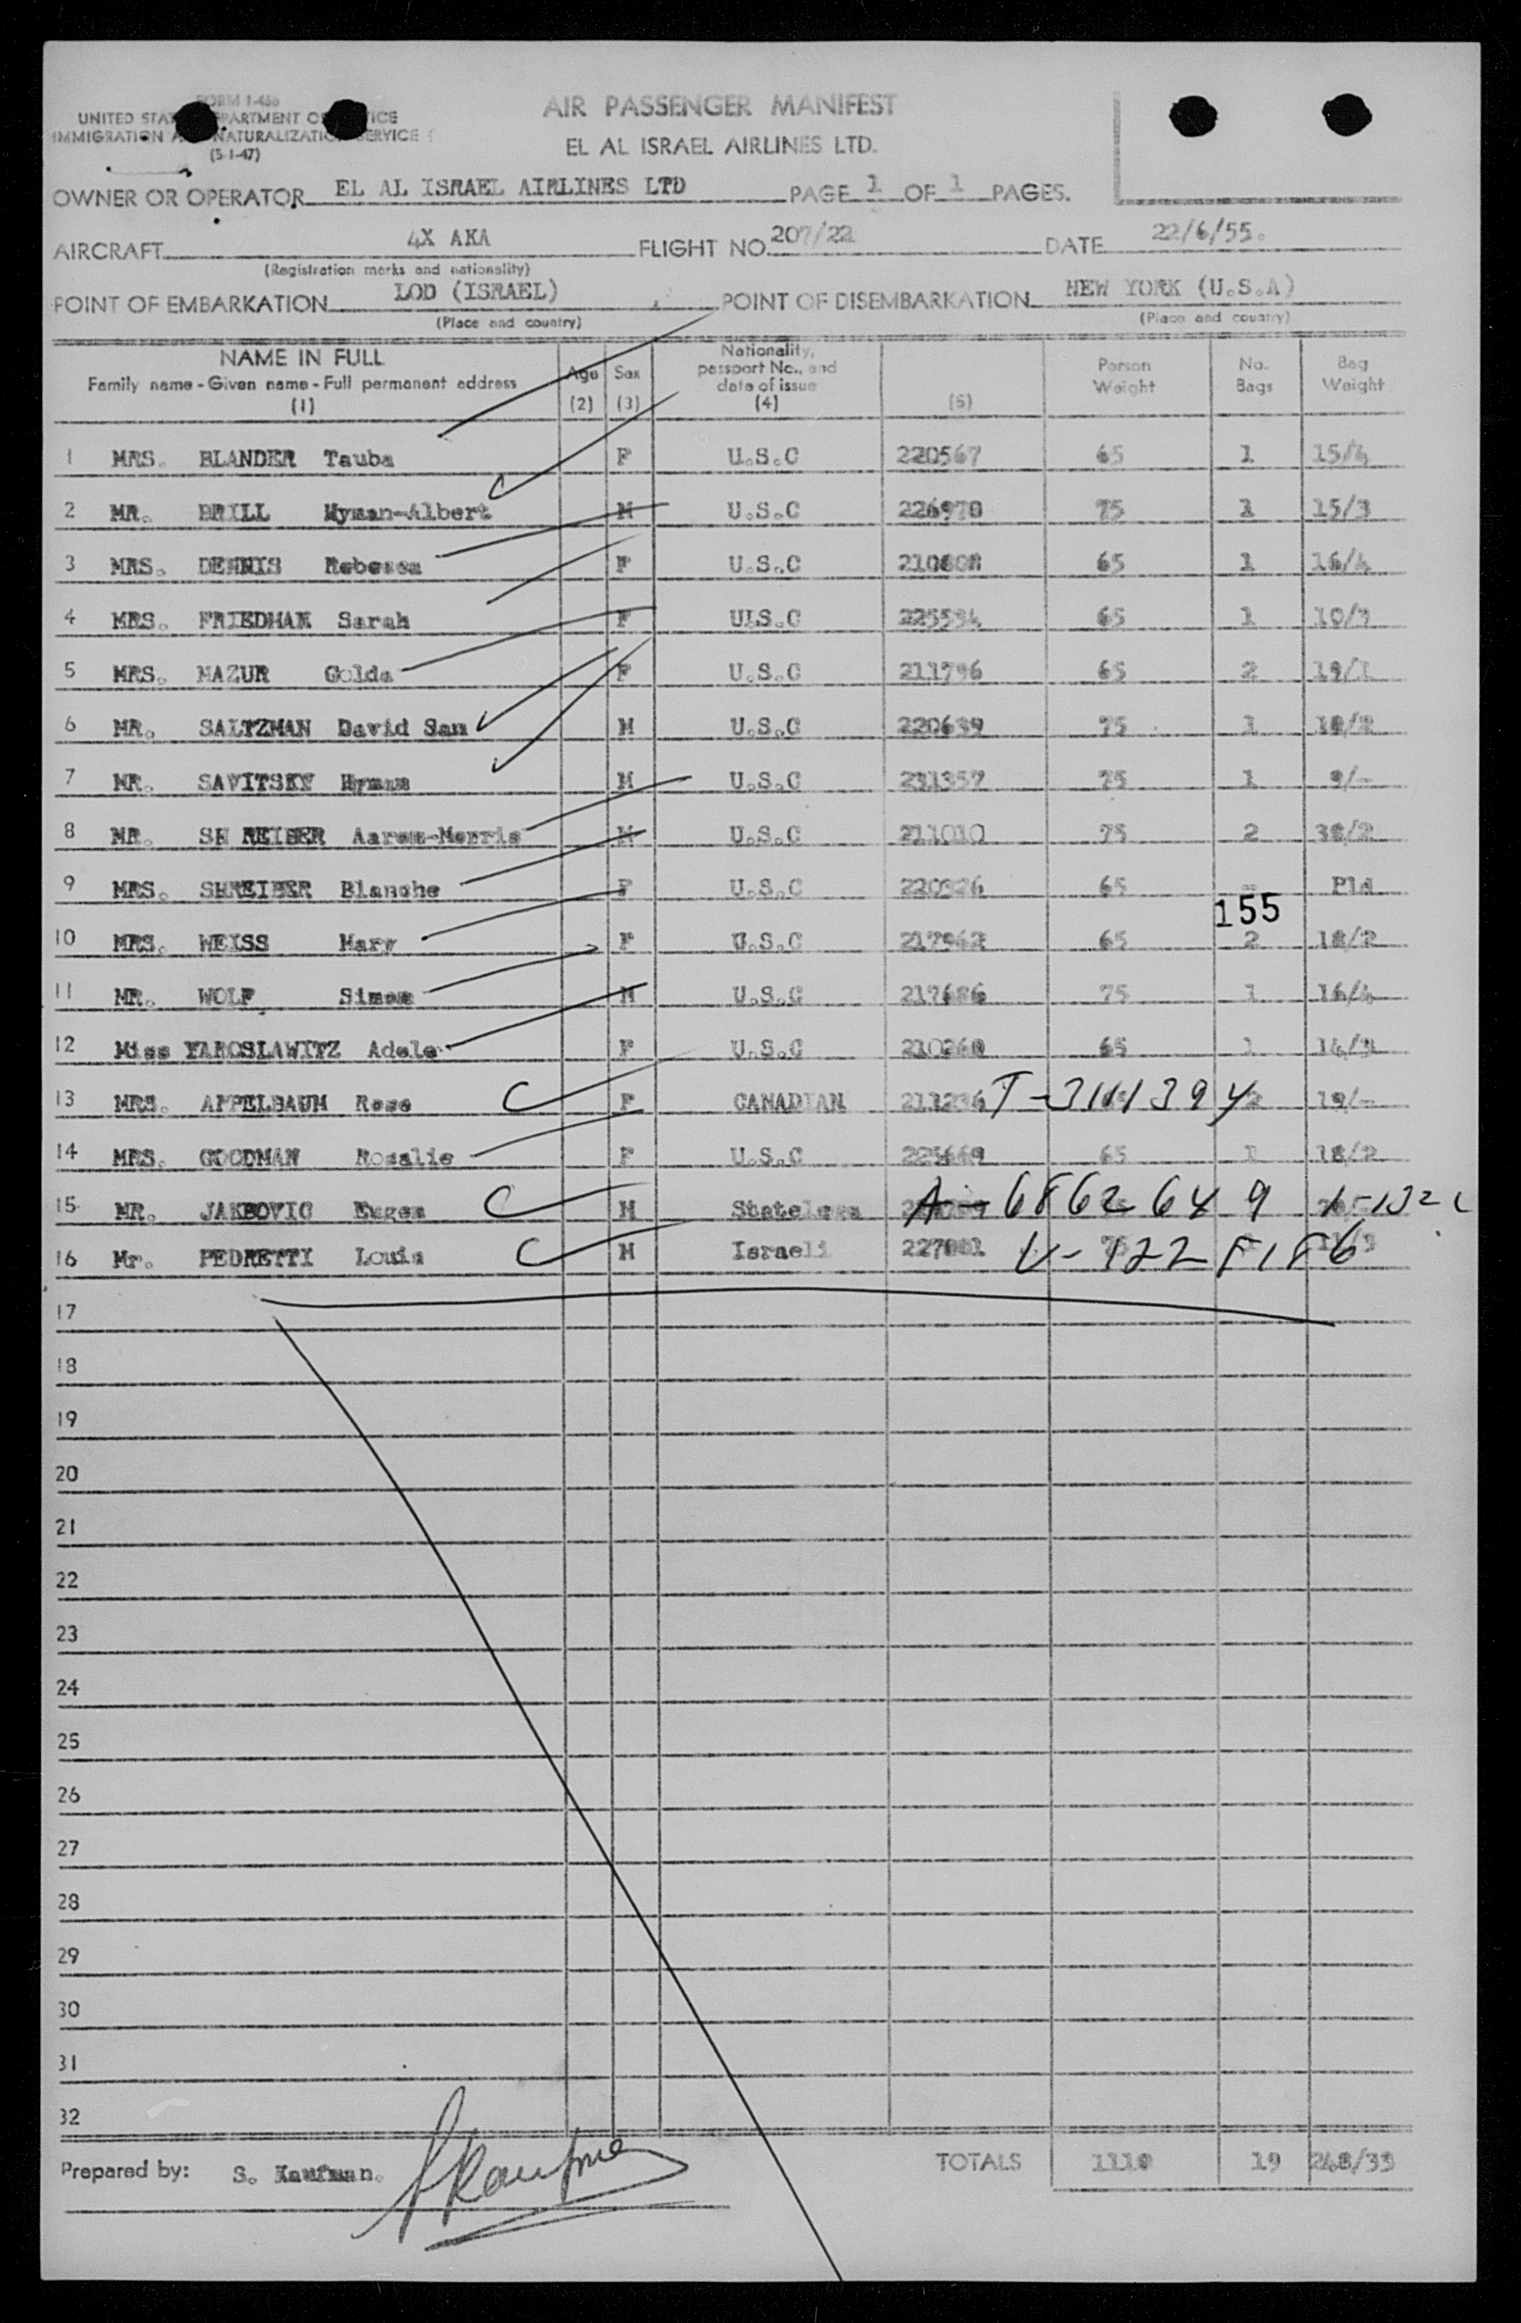 FORM I-466
UNITED STA PARTMENT O TICE
IMMIGRATION A NATURALIZATIO SERVICE
(5-1-47)
AIR PASSENGER MANIFEST
EL AL ISRAEL AIRLINES LTD.
OWNER OR OPERATOR EL AL ISRAEL AIRLINES LTD PAGE 1 OF 1 PAGES.
AIRCRAFT 4X AKA FLIGHT NO. 207/22 DATE 22/6/55.
(Registration marks and nationality)
POINT OF EMBARKATION LOD (ISRAEL) POINT OF DISEMBARKATION NEW YORK (U.S.A)
(Place and country) (Place and country)
NAME IN FULL Age Sex Nationality, Person No. Bag
Family name - Given name - Full permanent address passport No., and Weight Bags Weight
date of issue
(1) (2) (3) (4) (5)
1 MRS. BLANDER Tauba F U.S.C 220567 65 1 15/4
2 MR. BRILL Hyman-Albert M U.S.C 226970 75 1 15/3
3 MRS. DENNIS Rebecca F U.S.C 210808 65 1 16/4
4 MRS. FRIEDMAN Sarah F UIS.C 225534 65 1 10/3
5 MRS. MAZUR Golda F U.S.C 211796 65 2 19/1
6 MR. SALTZMAN David San M U.S.C 220639 75 1 18/2
7 MR. SAVITSKY Hyman M U.S.C 231357 75 1 9/-
8 MR. SH REIBER Aaron-Morris M U.S.C 211010 75 2 38/2
9 MRS. SHREIBER Blanche F U.S.C 220326 65 - Pld
155
10 MRS. WEISS Mary F U.S.C 217962 65 2 18/2
11 MR. WOLF Simon M U.S.C 217686 75 1 16/4
12 Miss YAROSLAWITZ Adele F U.S.C 210260 65 1 14/3
13 MRS. APPELBAUM Rose F CANADIAN 211236 T-3111394 2 19/-
14 MRS. GOODMAN Rosalie F U.S.C 225669 65 1 18/2
15 MR. JAKBOVIC Eugen M Stateless A-6862649
16 Mr. PEDRETTI Louis M Israeli 227001 V-1228186
17
18
19
20
21
22
23
24
25
26
27
28
29
30
31
32
Prepared by: S. Kaufman. SKaufman TOTALS 1110 19 248/33